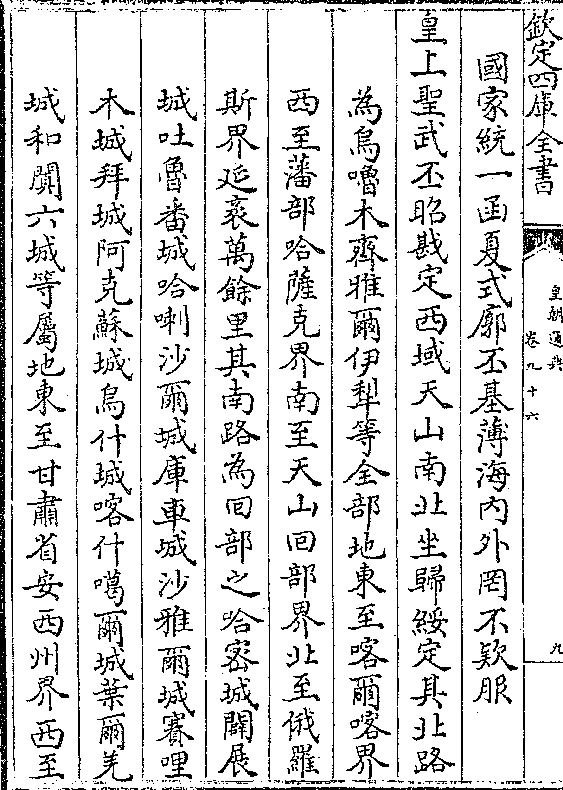 欽定四庫全書
皇朝通典
卷九十六
九
國家統一函夏式廓丕基薄海内外罔不欵服
皇上聖武丕昭戡定西域天山南北坐歸綏定其北路
為烏嚕木齊雅爾伊犁等全部地東至喀爾喀界
西至藩部哈薩克界南至天山回部界北至俄羅
斯界延袤萬餘里其南路為回部之哈密城闢展
城吐魯番城哈喇沙爾城庫車城沙雅爾城賽哩
木城拜城阿克蘇城烏什城喀什噶爾城葉爾羌
城和闐六城等屬地東至甘肅省安西州界西至